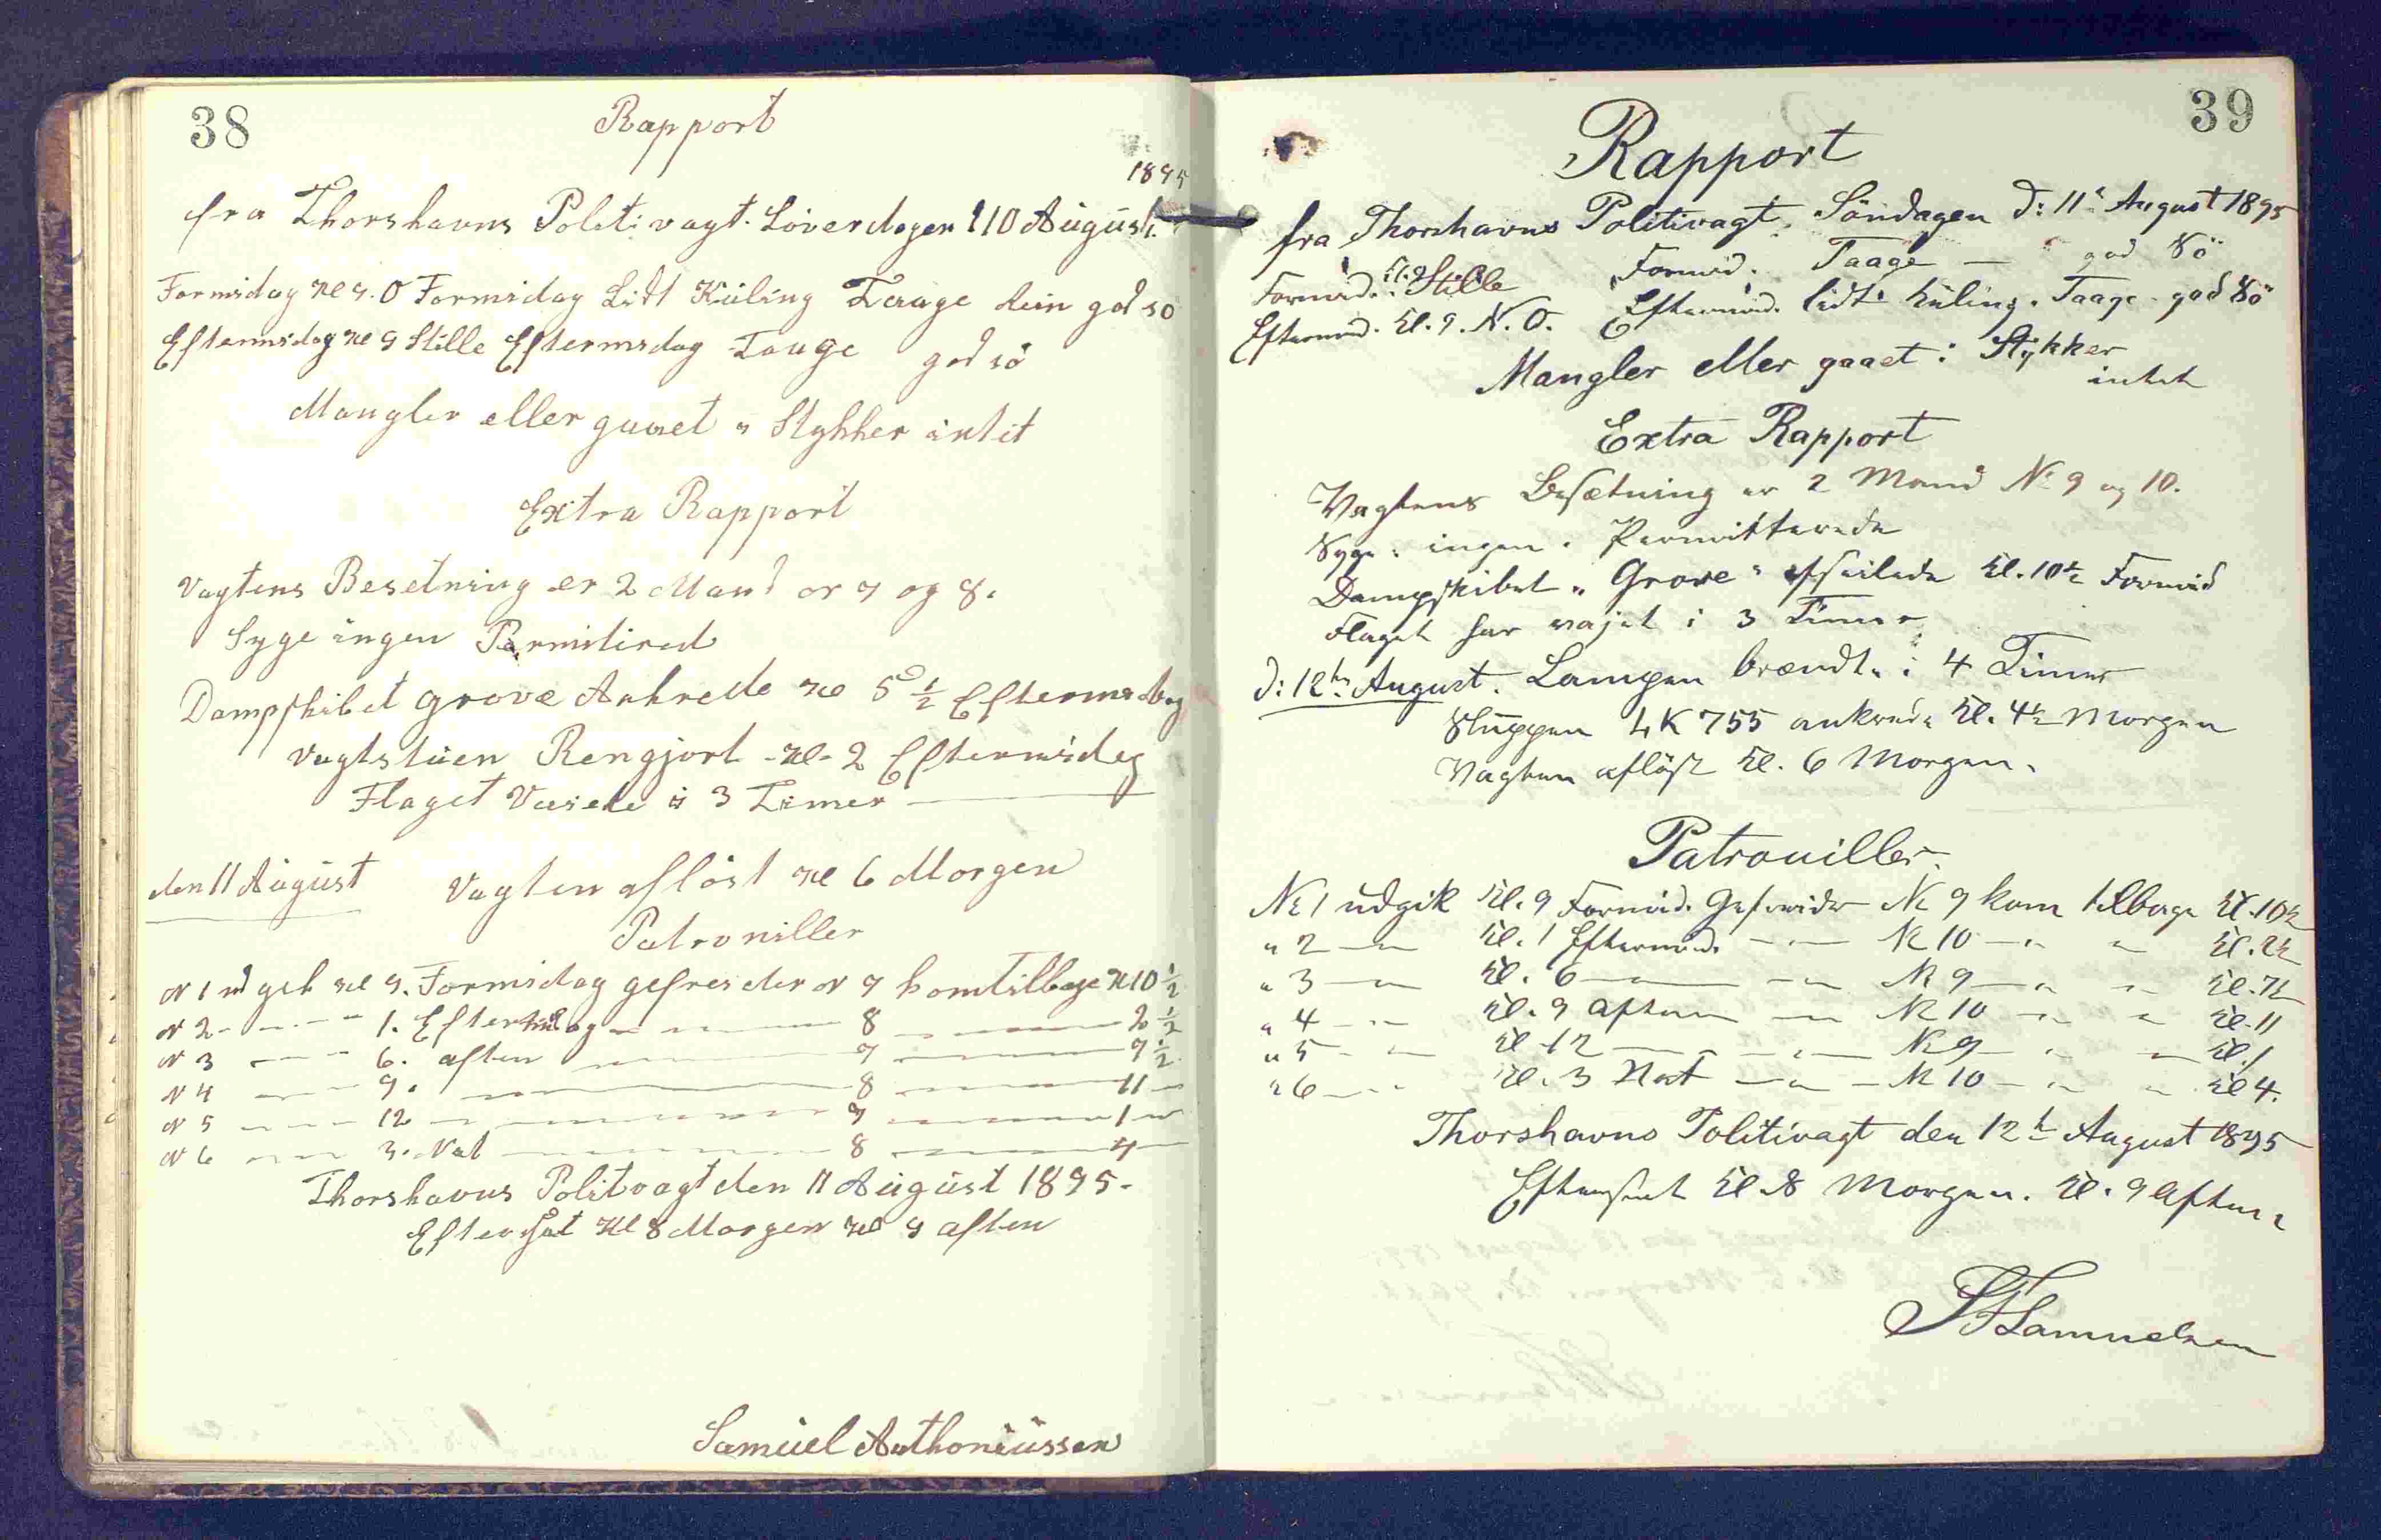 38
Rapport
1895
fra Thorshavns Politivagt. Löverdagen 10 August.
Formidag Kl 9. O Formidag Lidt Küling Tauge god sö
Eftermidag Kl 9 Stille Eftermsdag Tauge god sö
Mangler eller gaaet i Stykker intit
Extra Rapport
Vagtens Besetning er 2 Mand Nr 7 og 8.
Syge ingen Permitired
Dampskibet Grove Ankrede Kl 5 1/2 Eftermidag
Vagtstüen Rengjort Kl 2 Eftermidag
Flaget Vaiede i 3 Timer
den 11 August Vagten aflöst Kl 6 Morgen
Patroniller
N 1 udgik Kl 9. Formidag gefreider N 7 kom tilbage Kl 10 1/2
N 2 - - - 1. Eftermidag - - 8 - - 2 1/2
N 3 - - - 6. aften - - 7 - - 7 1/2
N 4 - - 9. - - 8 - - 11
N 5 - - - 12 - - 7 - - 1
N 6 - - 3. Nat - - 8 - - 4
Thorshavns Politvagt den 11 August 1895.
Eftersat Kl 8 Morgen Kl 9 aften
Samüel Anthoniüssen
39
Rapport
fra Thorshavns Politivagt. Söndagen d: 11te August 1895
Formid. Kl. 9 Stille Formid. Taage — god Sö
Eftermid. Kl. 9. N. O. Eftermid. lidt Küling. Taage god Sö
Mangler eller gaaet i Stykker
intet
Extra Rapport
Vagtens Besætning er 2 Mand No 9 og 10.
Syge: ingen. Permitterede
Dampskibet "Grove" afseilede Kl. 10½ Formid
Flaget har vajet i 3 Timer
d: 12te August. Lampen brændte i 4 Timer
Sluppen LK 755 ankrede Kl. 4½ Morgen
Vagten aflöst Kl. 6 Morgen.
Patrouiller
No 1 udgik Kl. 9 Formid. Gefreider No 9 kom tilbage Kl. 10½
" 2 — " — Kl. 1 Eftermid. — " — No 10 — " — " Kl. 2½
" 3 — " — Kl. 6 — " — " — No 9 — " — " Kl. 7½
" 4 — " — Kl. 9 Aften — " — No 10 — " — " Kl. 11
" 5 — " — Kl. 12 — " — " — No 9 — " — " Kl. 1
" 6 — " — Kl. 3 Nat — " — No 10 — " — " Kl 4.
Thorshavns Politivagt den 12te August 1895
Eftersat Kl. 8 Morgen. Kl. 9 Aften.
Samuelsen